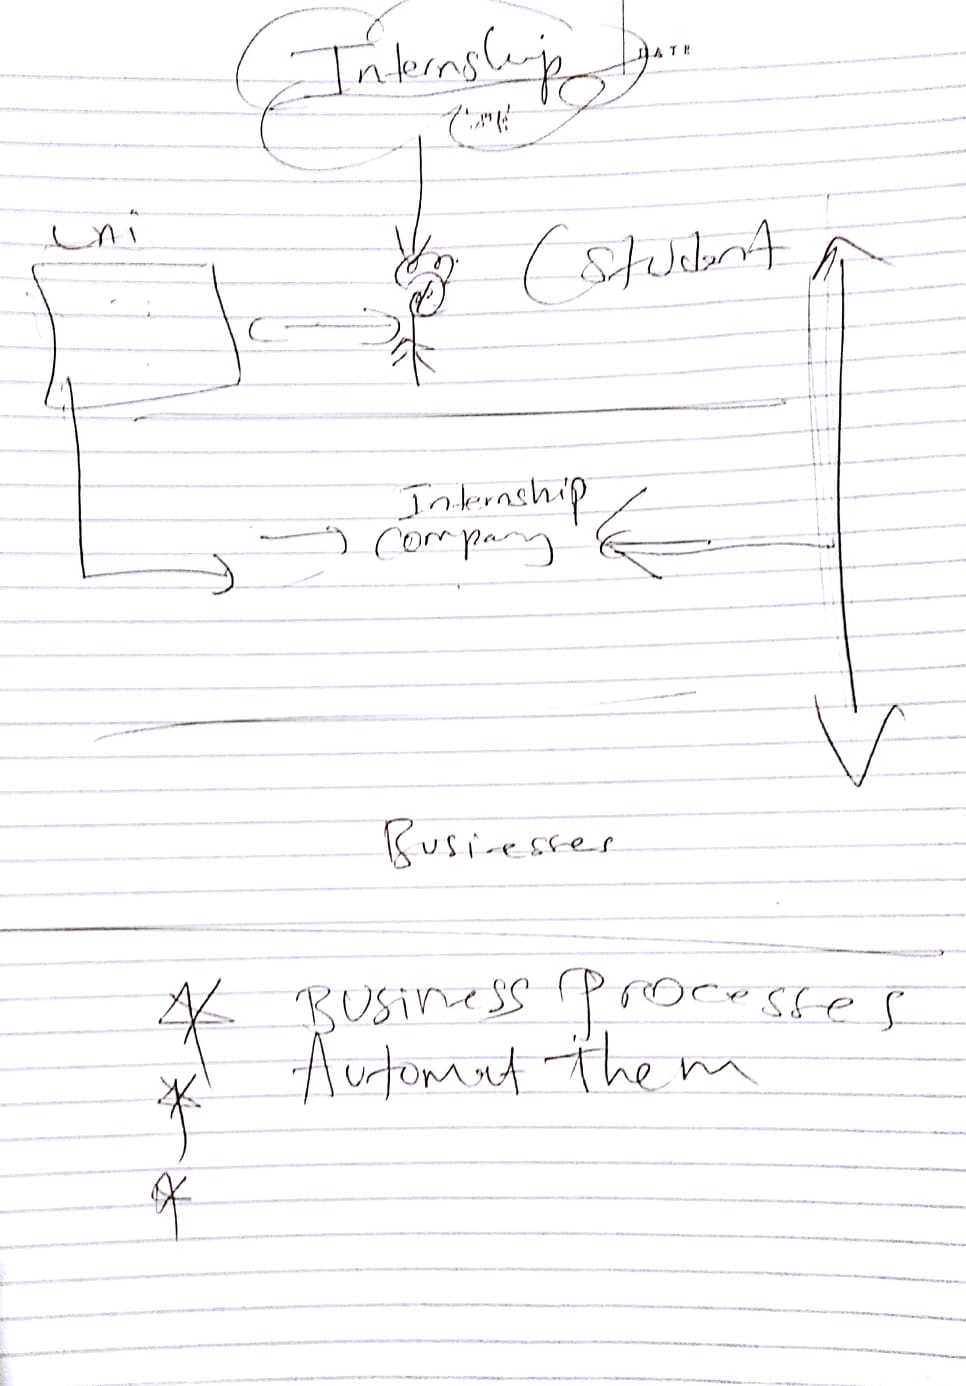 Internship
DATE
uni
(Student
Internship
Company
Businesses
Business Processes
Automat them